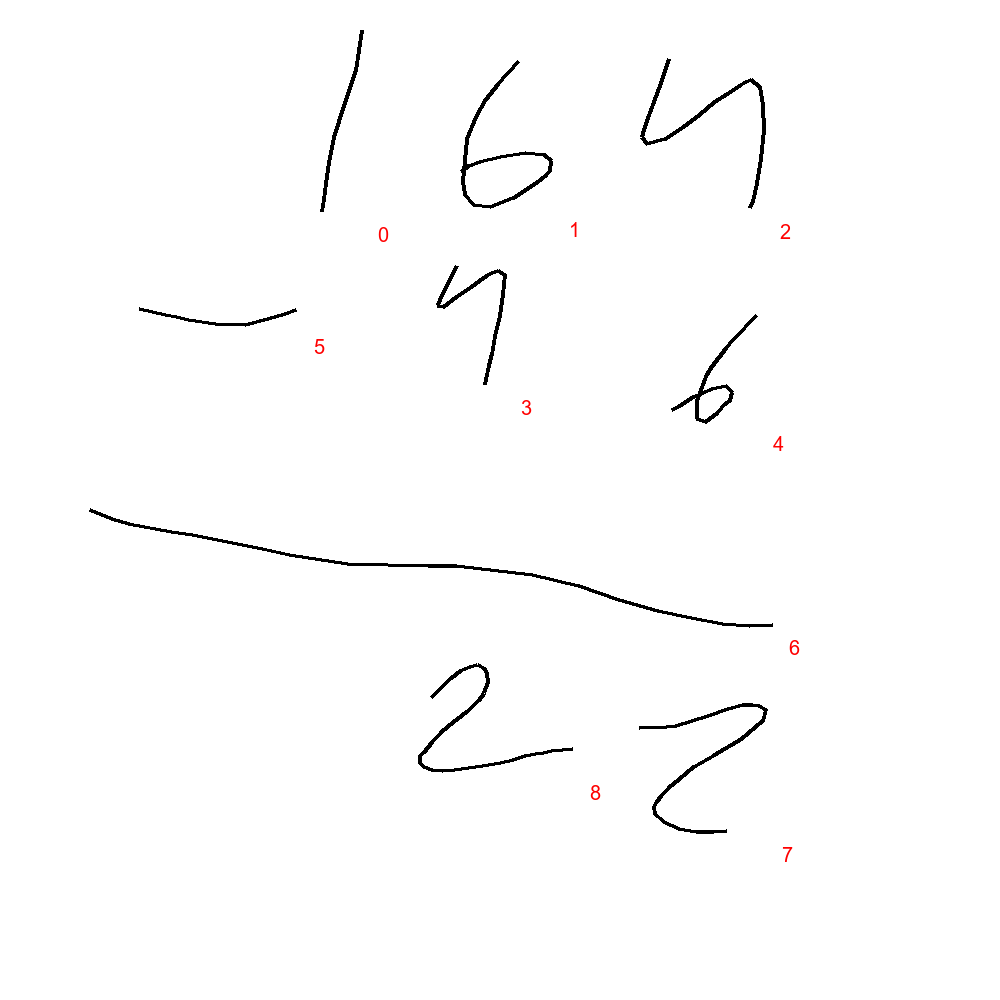 1 6 4
0 1 2
- 4 6
5 3 4
6
2 2
8 7